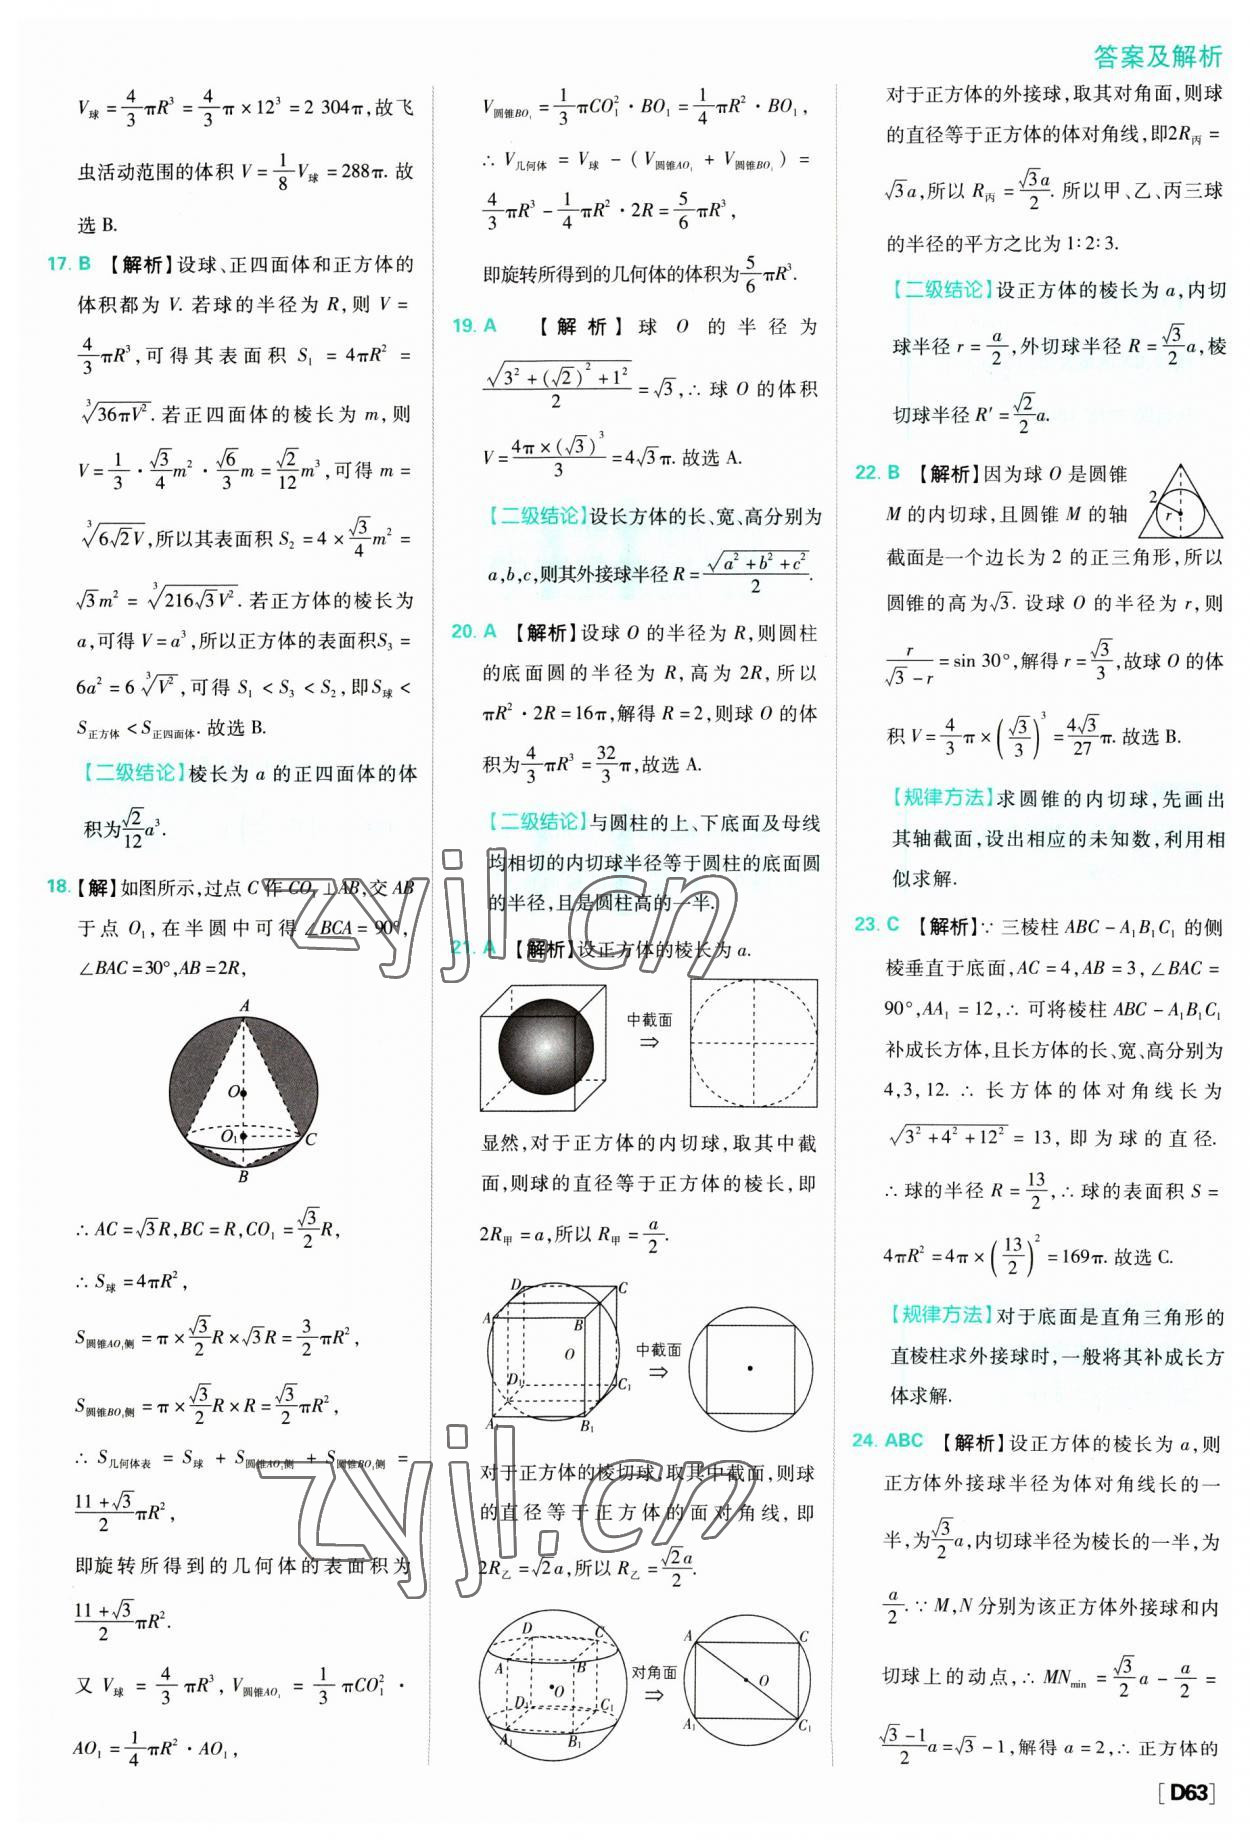 答案及解析
V球 = 4/3 πR³ = 4/3 π × 12³ = 2 304π,故飞
虫活动范围的体积 V = 1/8 V球 = 288π. 故
选 B.
17. B 【解析】设球、正四面体和正方体的
体积都为 V. 若球的半径为 R,则 V =
4/3 πR³,可得其表面积 S₁ = 4πR² =
∛(36πV²). 若正四面体的棱长为 m,则
V = 1/3 · √3/4 m² · √6/3 m = √2/12 m³,可得 m =
∛(6√2V),所以其表面积 S₂ = 4 × √3/4 m² =
√3m² = ∛(216√3V²). 若正方体的棱长为
a,可得 V = a³,所以正方体的表面积S₃ =
6a² = 6∛(V²),可得 S₁ < S₃ < S₂,即S球 <
S正方体 < S正四面体. 故选 B.
【二级结论】棱长为 a 的正四面体的体
积为 √2/12 a³.
18. 【解】如图所示,过点 C 作 CO₁⊥AB,交 AB
于点 O₁,在半圆中可得 ∠BCA = 90°,
∠BAC = 30°,AB = 2R,
A
O
O₁
C
B
∴ AC = √3R,BC = R,CO₁ = √3/2 R,
∴ S球 = 4πR²,
S圆锥AO₁侧 = π × √3/2 R × √3R = 3/2 πR²,
S圆锥BO₁侧 = π × √3/2 R × R = √3/2 πR²,
∴ S几何体表 = S球 + S圆锥AO₁侧 + S圆锥BO₁侧 =
(11+√3)/2 πR²,
即旋转所得到的几何体的表面积为
(11+√3)/2 πR².
又 V球 = 4/3 πR³, V圆锥AO₁ = 1/3 πCO₁² ·
AO₁ = 1/4 πR² · AO₁,
V圆锥BO₁ = 1/3 πCO₁² · BO₁ = 1/4 πR² · BO₁,
∴ V几何体 = V球 - ( V圆锥AO₁ + V圆锥BO₁ ) =
4/3 πR³ - 1/4 πR² · 2R = 5/6 πR³,
即旋转所得到的几何体的体积为 5/6 πR³.
19. A 【解析】球 O 的半径为
√(3²+(√2)²+1²)/2 = √3,∴ 球 O 的体积
V = 4π×(√3)³/3 = 4√3π. 故选 A.
【二级结论】设长方体的长、宽、高分别为
a,b,c,则其外接球半径 R = √(a²+b²+c²)/2.
20. A 【解析】设球 O 的半径为 R,则圆柱
的底面圆的半径为 R,高为 2R,所以
πR² · 2R = 16π,解得 R = 2,则球 O 的体
积为 4/3 πR³ = 32/3 π,故选 A.
【二级结论】与圆柱的上、下底面及母线
均相切的内切球半径等于圆柱的底面圆
的半径,且是圆柱高的一半.
21. A 【解析】设正方体的棱长为 a.
中截面
⇒
显然,对于正方体的内切球,取其中截
面,则球的直径等于正方体的棱长,即
2R甲 = a,所以 R甲 = a/2.
D C
A B
O
D₁ C₁
A₁ B₁
中截面
⇒
对于正方体的棱切球,取其中截面,则球
的直径等于正方体的面对角线,即
2R乙 = √2a,所以 R乙 = √2a/2.
D C
A B
O
D₁ C₁
A₁ B₁
对角面
⇒
A C
O
A₁ C₁
对于正方体的外接球,取其对角面,则球
的直径等于正方体的体对角线,即2R丙 =
√3a,所以 R丙 = √3a/2. 所以甲、乙、丙三球
的半径的平方之比为 1∶2∶3.
【二级结论】设正方体的棱长为 a,内切
球半径 r = a/2,外切球半径 R = √3/2 a,棱
切球半径 R′ = √2/2 a.
22. B 【解析】因为球 O 是圆锥
M 的内切球,且圆锥 M 的轴
2
r
截面是一个边长为 2 的正三角形,所以
圆锥的高为√3. 设球 O 的半径为 r,则
r/(√3-r) = sin 30°,解得 r = √3/3,故球 O 的体
积 V = 4/3 π × (√3/3)³ = 4√3/27 π. 故选 B.
【规律方法】求圆锥的内切球,先画出
其轴截面,设出相应的未知数,利用相
似求解.
23. C 【解析】∵ 三棱柱 ABC - A₁B₁C₁ 的侧
棱垂直于底面,AC = 4,AB = 3,∠BAC =
90°,AA₁ = 12,∴ 可将棱柱 ABC - A₁B₁C₁
补成长方体,且长方体的长、宽、高分别为
4,3,12. ∴ 长方体的体对角线长为
√(3²+4²+12²) = 13,即为球的直径.
∴ 球的半径 R = 13/2,∴ 球的表面积 S =
4πR² = 4π × (13/2)² = 169π. 故选 C.
【规律方法】对于底面是直角三角形的
直棱柱求外接球时,一般将其补成长方
体求解.
24. ABC 【解析】设正方体的棱长为 a,则
正方体外接球半径为体对角线长的一
半,为 √3/2 a,内切球半径为棱长的一半,为
a/2. ∵ M,N 分别为该正方体外接球和内
切球上的动点,∴ MNmin = √3/2 a - a/2 =
(√3-1)/2 a = √3 - 1,解得 a = 2,∴ 正方体的
zyjl.cn
zyjl.cn
[ D63 ]